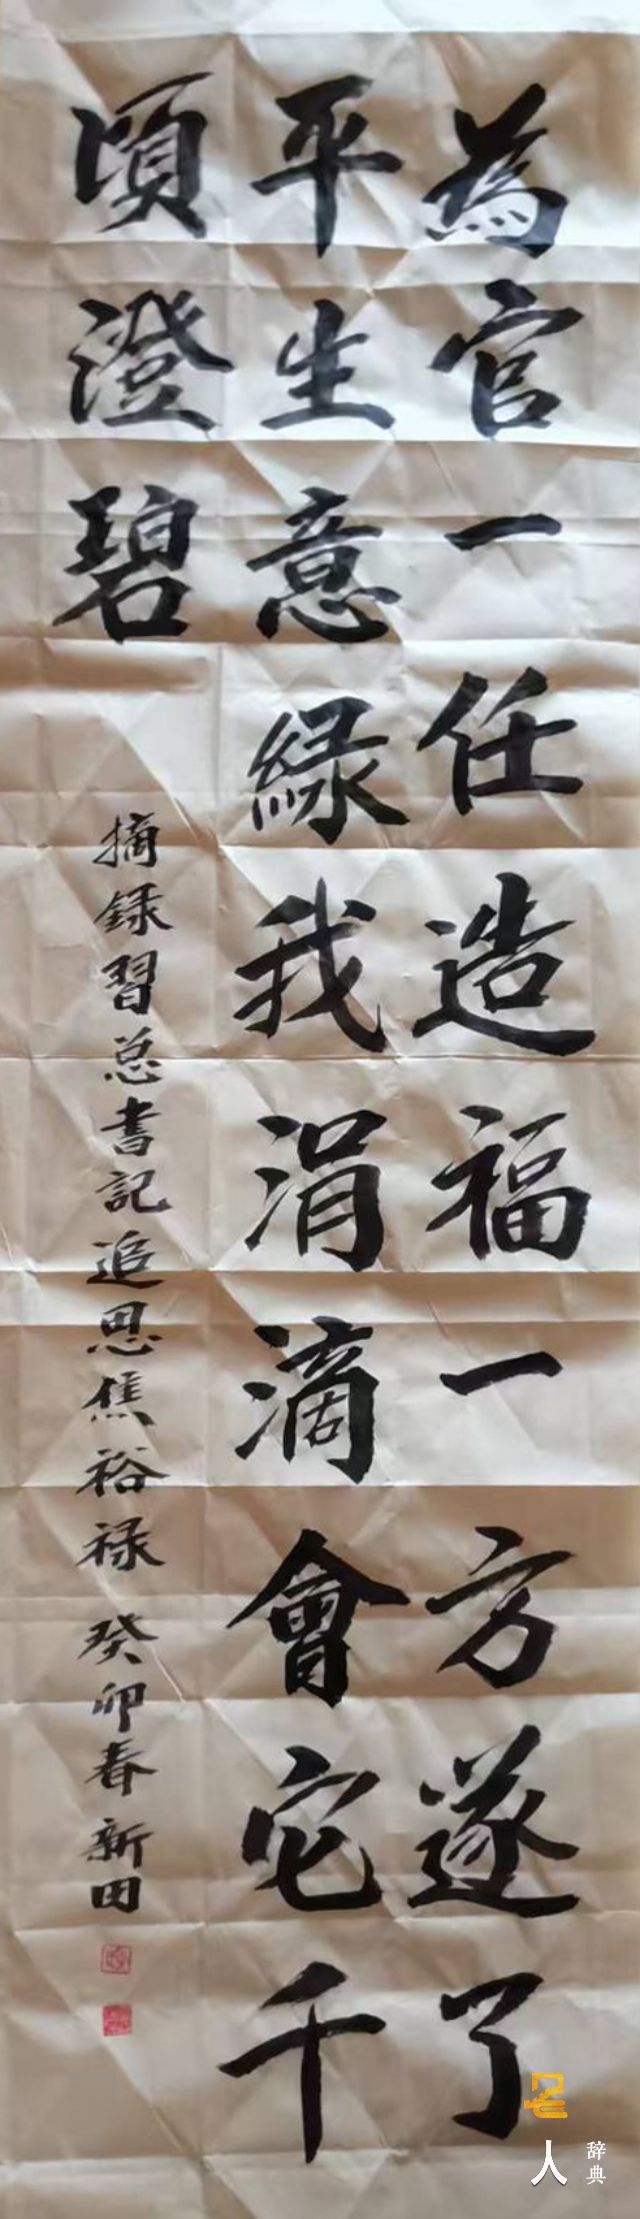 為官一任造福一方遂了
平生意緑我涓滴會它千
頃澄碧
摘録習总書記追思焦裕禄 癸卯春 新田
名人辞典